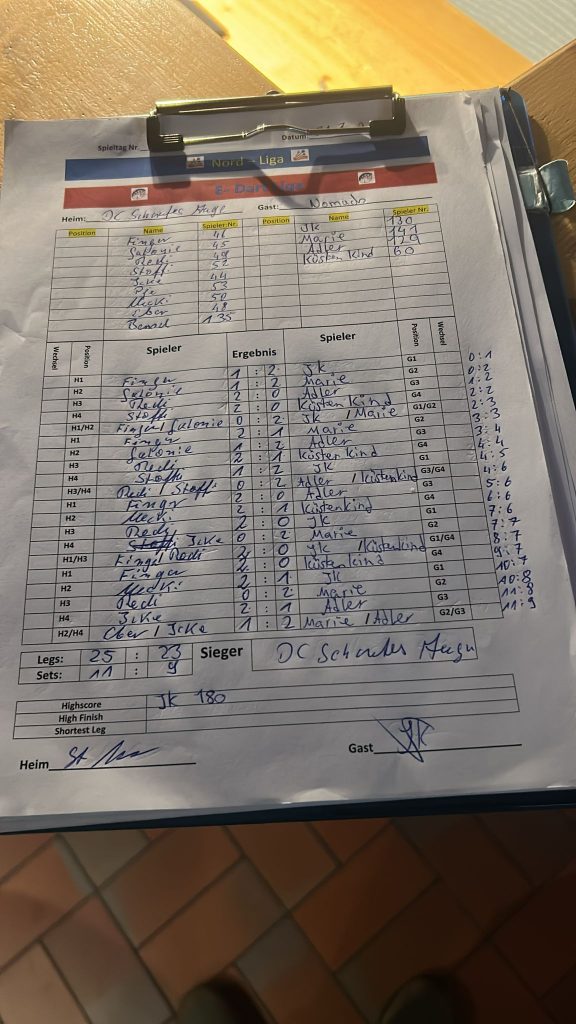 Spieltag Nr. Datum
Nord - Liga
E- Dart Liga
Heim: DC Gast: Nomado
Position Name Spieler-Nr. Position Name Spieler Nr.
Finger 46 Jk 130
Salonie 45 Marie 141
Redi 49 Adler 129
Stoffi 52 Küsten Kind 60
Icke 44
53
Mecki 50
Ober 48
135
Wechsel Position Spieler Ergebnis Spieler Position Wechsel
H1 Finger 1 : 2 Jk G1 0:1
H2 Salonie 1 : 2 Marie G2 0:2
H3 Redi 2 : 0 Adler G3 1:2
H4 Stoffi 2 : 0 Küsten Kind G4 2:2
H1/H2 Finger/Salonie 0 : 2 Jk / Marie G1/G2 2:3
H1 Finger 2 : 1 Marie G2 3:3
H2 Salonie 1 : 2 Adler 3:4
H3 Redi 2 : 1 Küsten Kind G4 4:4
H4 Stoffi 1 : 2 Jk G1 4:5
H3/H4 Redi / Stoffi 0 : 2 Adler / Küstenkind G3/G4 4:6
H1 Finger 2 : 0 Adler 5:6
H2 Mecki 2 : 1 Küstenkind G4 6:6
H3 Redi 2 : 0 Jk G1 7:6
H4 Icke 0 : 2 Marie G2 7:7
H1/H3 Finger/Redi 2 : 0 Jk / Küstenkind G1/G4 8:7
H1 Finger 2 : 0 Küstenkind G4 9:7
H2 Mecki 2 : 1 Jk G1 10:7
H3 Redi 0 : 2 Marie G2 10:8
H4 Icke 2 : 1 Adler G3 11:8
H2/H4 Ober / Icke 1 : 2 Marie / Adler G2/G3 11:9
Legs: 25 : 23 Sieger DC
Sets: 11 : 9
Highscore Jk 180
High Finish
Shortest Leg
Heim Gast